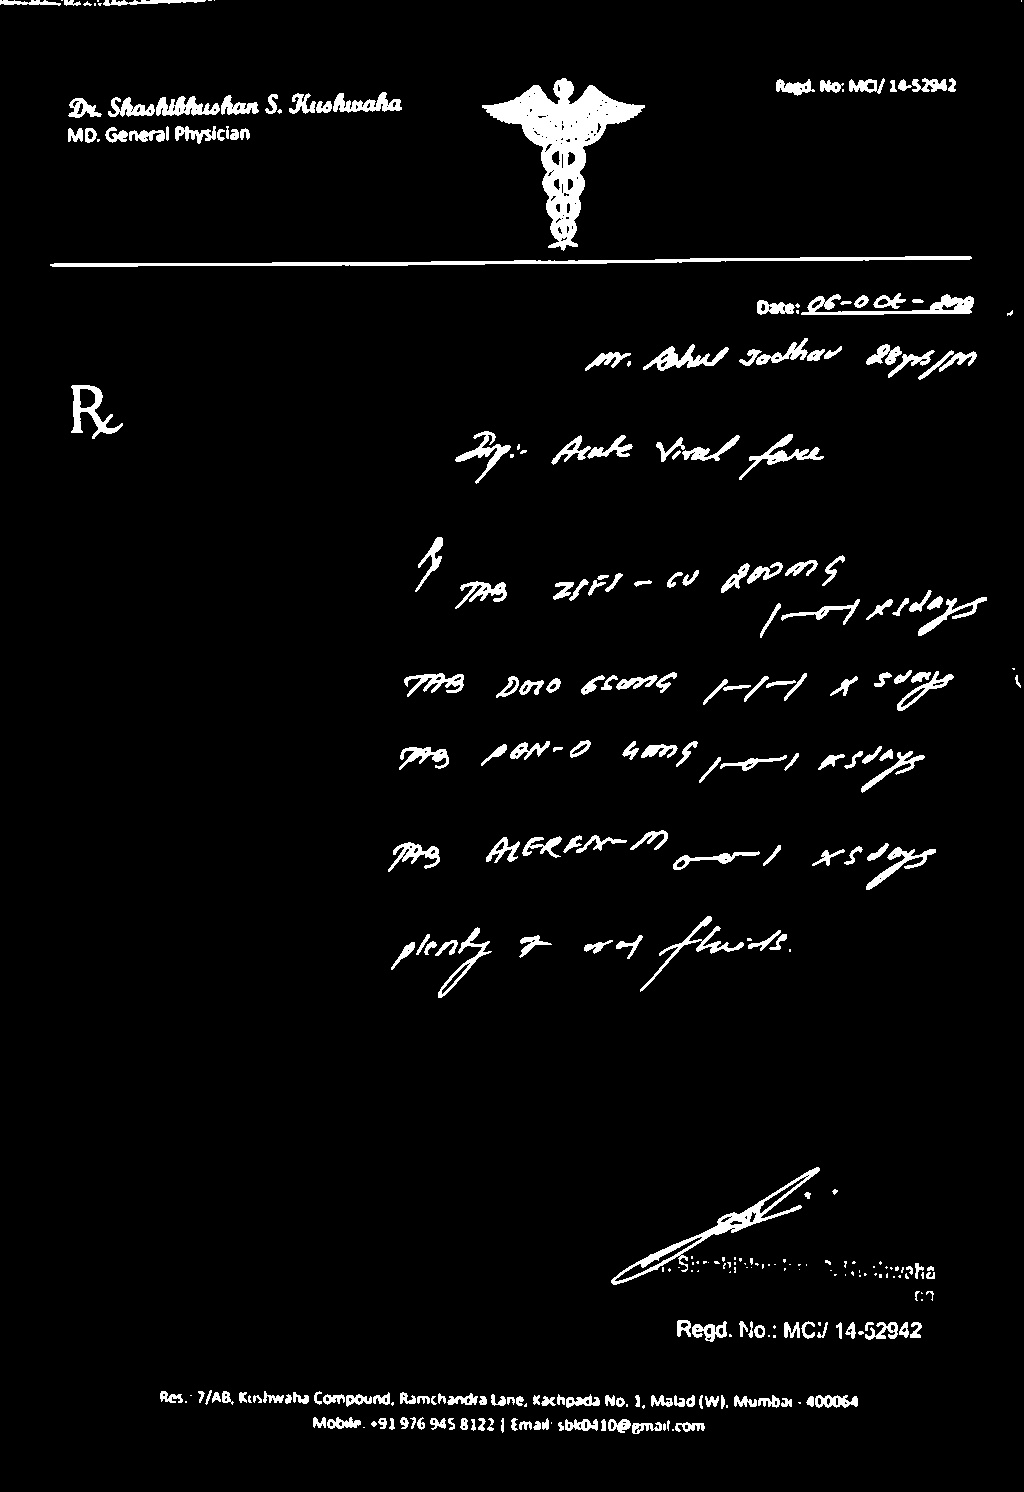 Dr. Shashibhushan S. Kushwaha
MD. General Physician
Regd. No: MCI/ 14-52942
Date: 06-Oct-
Mr. Jadhav 28yrs/M
Rx
Imp:- Acute Viral fever
TAB ZIFI - CV 200MG
1-0-1 x 5days
TAB DOLO 650MG 1-1-1 x 5days
TAB PAN-D 40MG 1-0-1 x 5days
TAB ALERFIX-M 0-0-1 x 5days
plenty of oral fluids.
Shashibhushan S. Kushwaha
Regd. No.: MCI/ 14-52942
Res.: 7/AB, Kushwaha Compound, Ramchandra Lane, Kachpada No. 1, Malad (W), Mumbai - 400064
Mobile: +91 976 945 8122 | Email: sbk0410@gmail.com